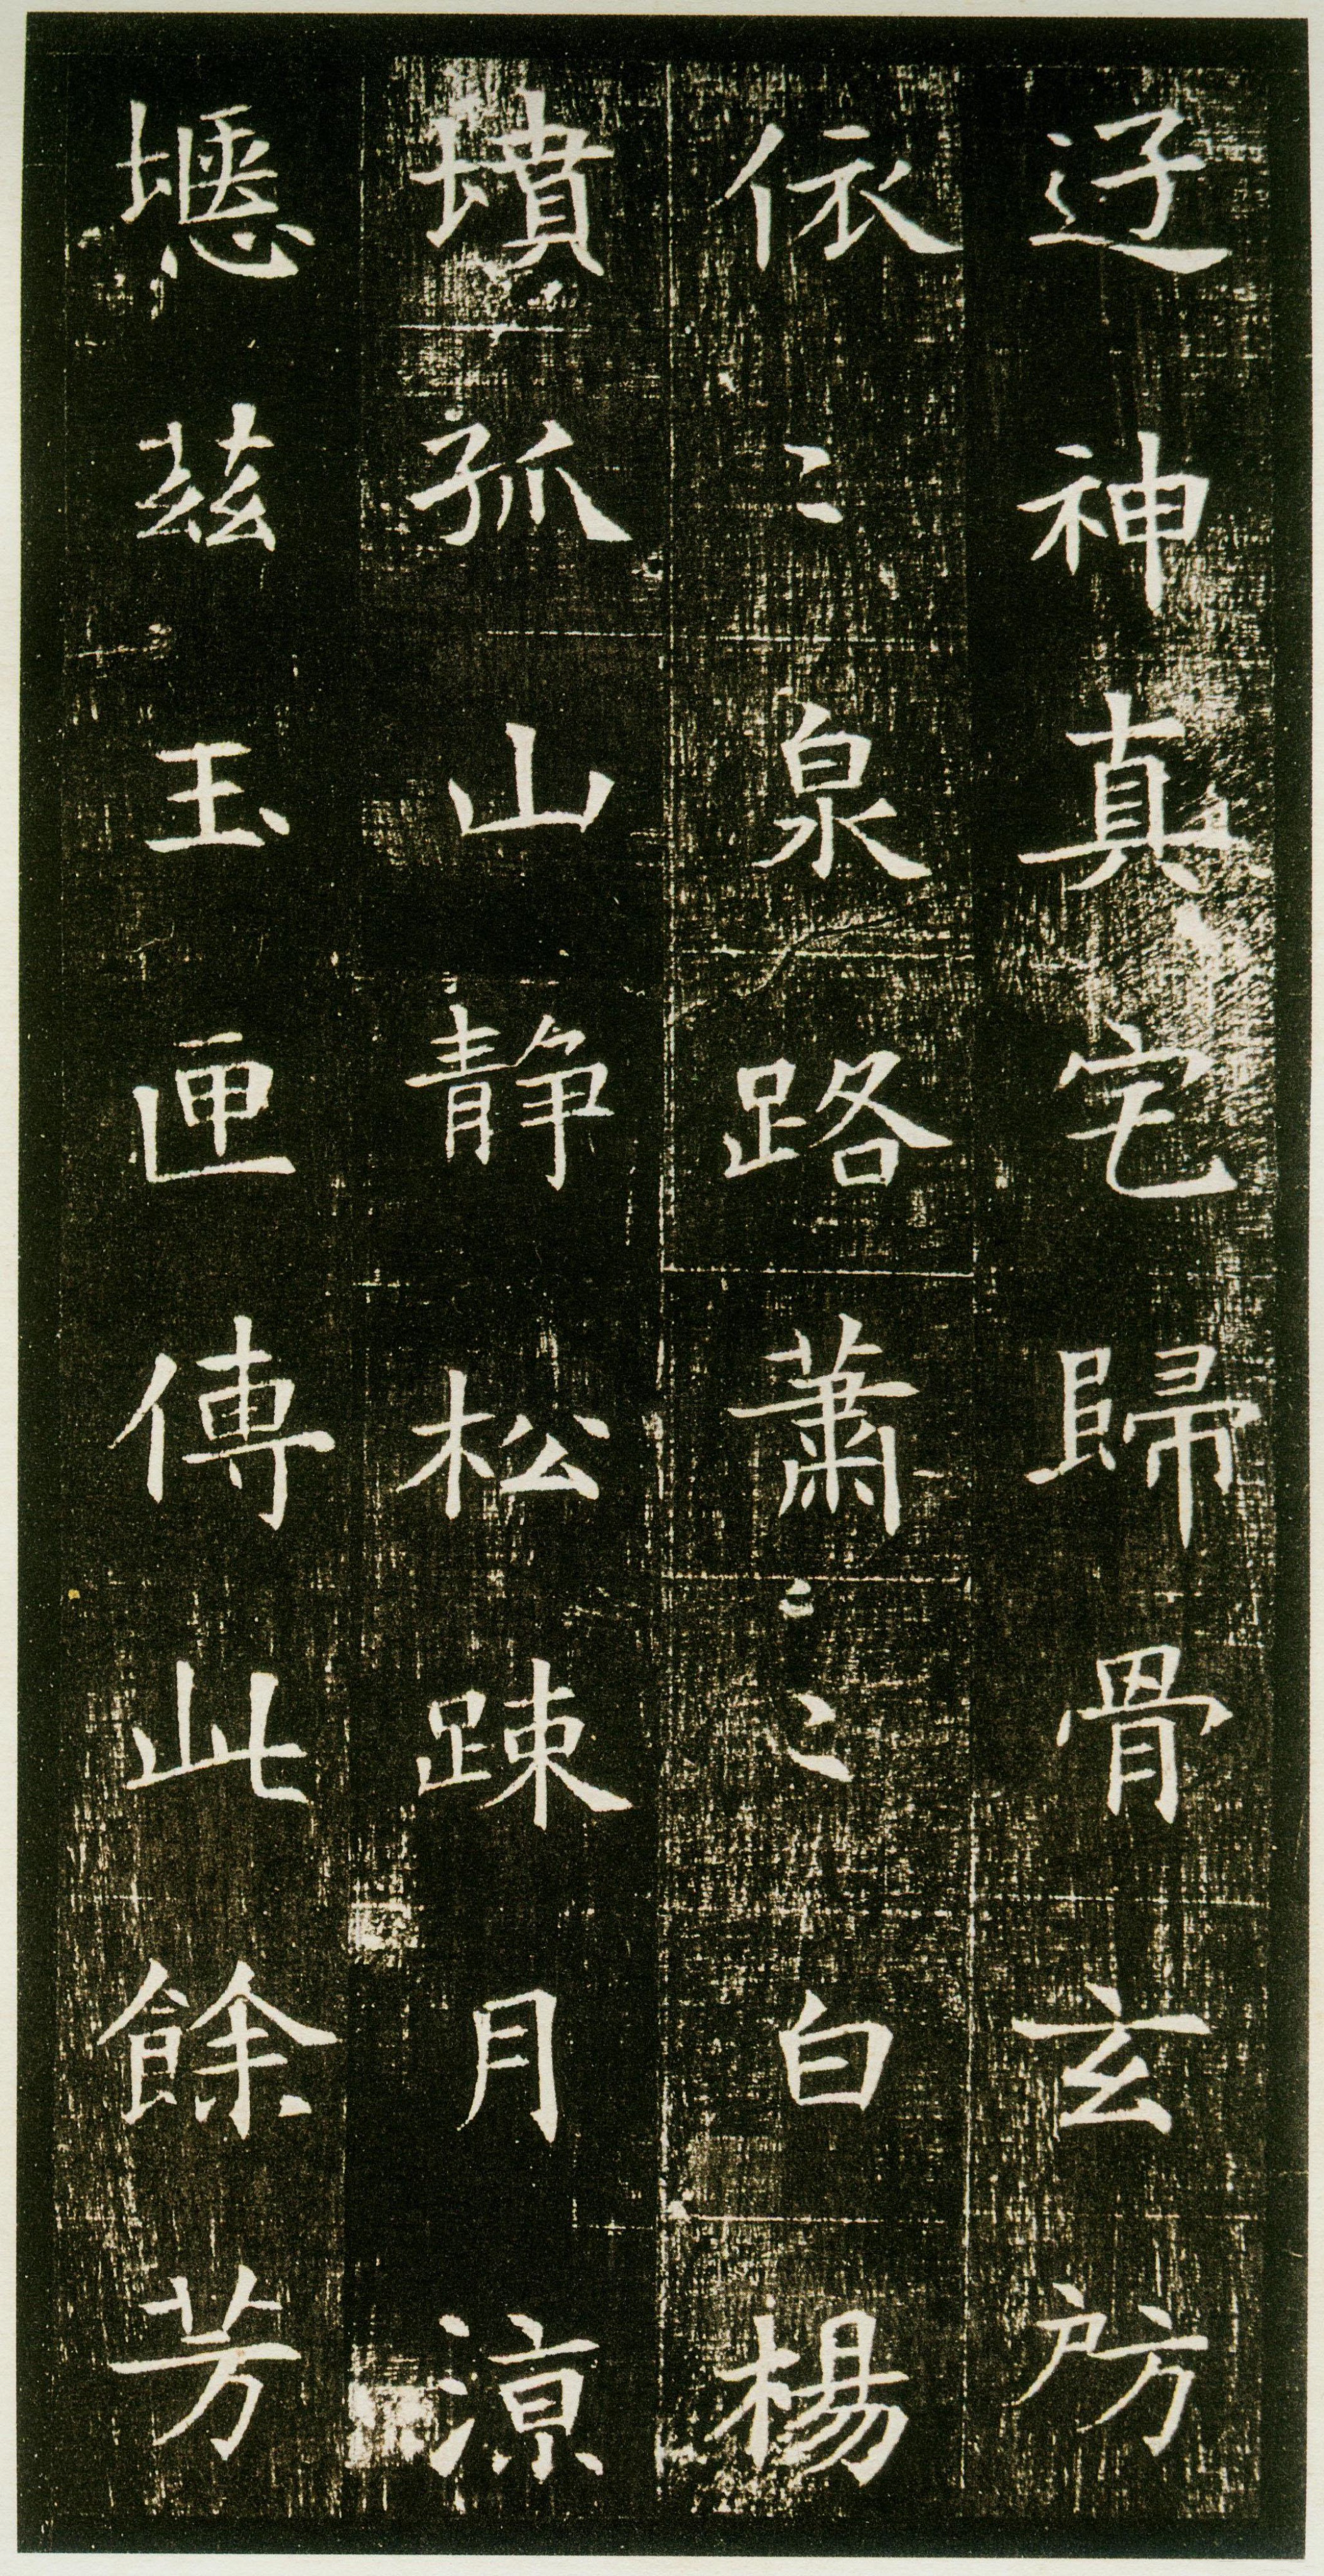 辽神真宅歸骨玄房
依〻泉路蕭〻白楊
墳孤山静松踈月涼
堰兹玉匣傳此餘芳